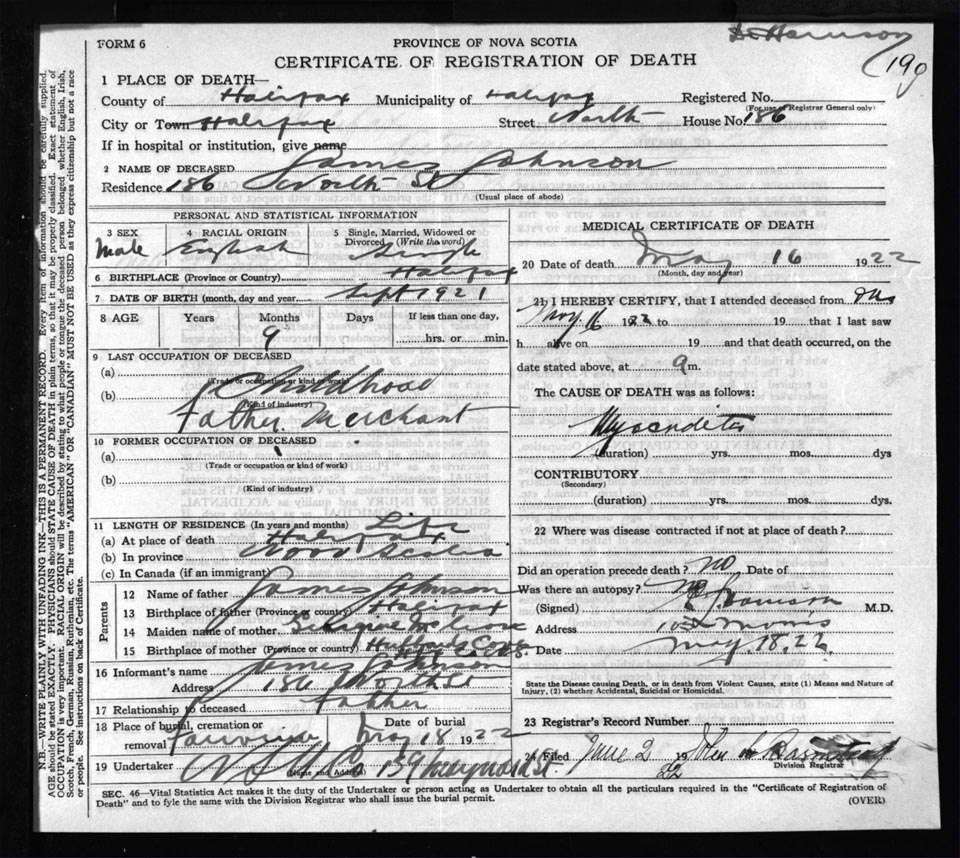 Dr Harrison
FORM 6
PROVINCE OF NOVA SCOTIA
199
CERTIFICATE OF REGISTRATION OF DEATH
1 PLACE OF DEATH—
County of Halifax Municipality of Halifax Registered No.
(For use of Registrar General only)
City or Town Halifax Street North House No. 186
If in hospital or institution, give name
2 NAME OF DECEASED James Johnson
Residence 186 North St
(Usual place of abode)
PERSONAL AND STATISTICAL INFORMATION
3 SEX 4 RACIAL ORIGIN 5 Single, Married, Widowed or Divorced (Write the word)
Male English Single
6 BIRTHPLACE (Province or Country) Halifax
7 DATE OF BIRTH (month, day and year) Sept 1921
8 AGE Years Months Days If less than one day,
9 hrs. or min.
9 LAST OCCUPATION OF DECEASED
(a)
(Trade or occupation or kind of work)
(b) Childhood
(Kind of industry)
Father Merchant
10 FORMER OCCUPATION OF DECEASED
(a)
(Trade or occupation or kind of work)
(b)
(Kind of industry)
11 LENGTH OF RESIDENCE (In years and months) Life
(a) At place of death Halifax
(b) In province Nova Scotia
(c) In Canada (if an immigrant)
Parents
12 Name of father James Johnson
13 Birthplace of father (Province or country) Halifax
14 Maiden name of mother
15 Birthplace of mother (Province or country)
16 Informant's name James Johnson
Address 186 North St
17 Relationship to deceased Father
18 Place of burial, cremation or removal Fairview Date of burial May 18 1922
19 Undertaker 139 Maynard St.
(Name and Address)
MEDICAL CERTIFICATE OF DEATH
20 Date of death May 16 1922
(Month, day and year)
21 I HEREBY CERTIFY, that I attended deceased from
May 16 1922 to 19 that I last saw
h alive on 19 and that death occurred, on the
date stated above, at 9 m.
The CAUSE OF DEATH was as follows:
Myocarditis
(duration) yrs. mos. dys
CONTRIBUTORY
(Secondary)
(duration) yrs. mos. dys.
22 Where was disease contracted if not at place of death?
Did an operation precede death? No Date of
Was there an autopsy? No
(Signed) Harrison M.D.
Address 102 Morris
Date May. 18. 22.
State the Disease causing Death, or in death from Violent Causes, state (1) Means and Nature of Injury, (2) whether Accidental, Suicidal or Homicidal.
23 Registrar's Record Number
24 Filed June 2 1922
Division Registrar
SEC. 46—Vital Statistics Act makes it the duty of the Undertaker or person acting as Undertaker to obtain all the particulars required in the "Certificate of Registration of
Death" and to fyle the same with the Division Registrar who shall issue the burial permit.
(OVER)
N.B.—WRITE PLAINLY WITH UNFADING INK—THIS IS A PERMANENT RECORD. Every item of information should be carefully supplied.
AGE should be stated EXACTLY. PHYSICIANS should STATE CAUSE OF DEATH in plain terms, so that it may be properly classified. Exact statement of
OCCUPATION is very important. RACIAL ORIGIN will be described by stating to what people or tongue the deceased person belonged whether English, Irish,
Scotch, French, German, Russian, Ruthenian, etc. The terms "AMERICAN" or "CANADIAN" MUST NOT BE USED as they express citizenship but not a race
or people. See instructions on back of Certificate.